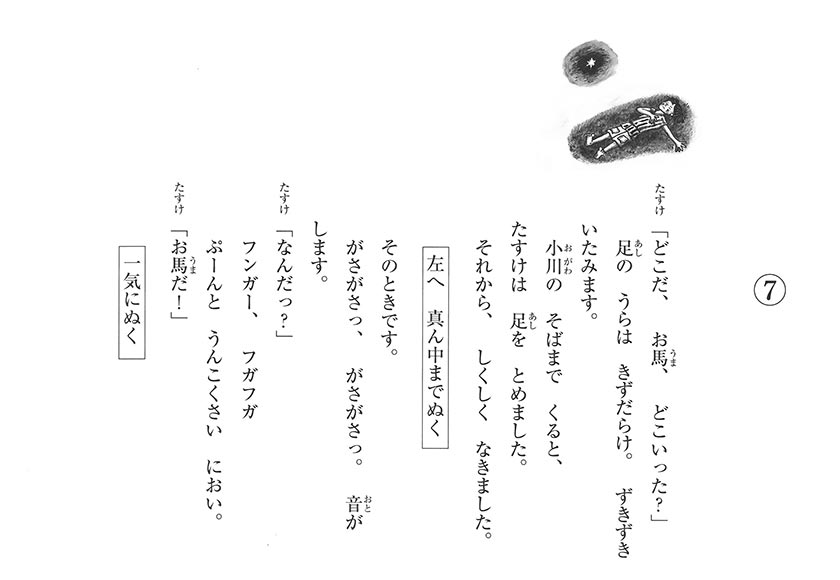 7
たすけ「どこだ、お馬、どこいった？」
足の うらは きずだらけ。ずきずき
いたみます。
小川の そばまで くると、
たすけは 足を とめました。
それから、しくしく なきました。
左へ 真ん中までぬく
そのときです。
がさがさっ、がさがさっ。音が
します。
たすけ「なんだっ？」
フンガー、フガフガ
ぷーんと うんこくさい におい。
たすけ「お馬だ！」
一気にぬく